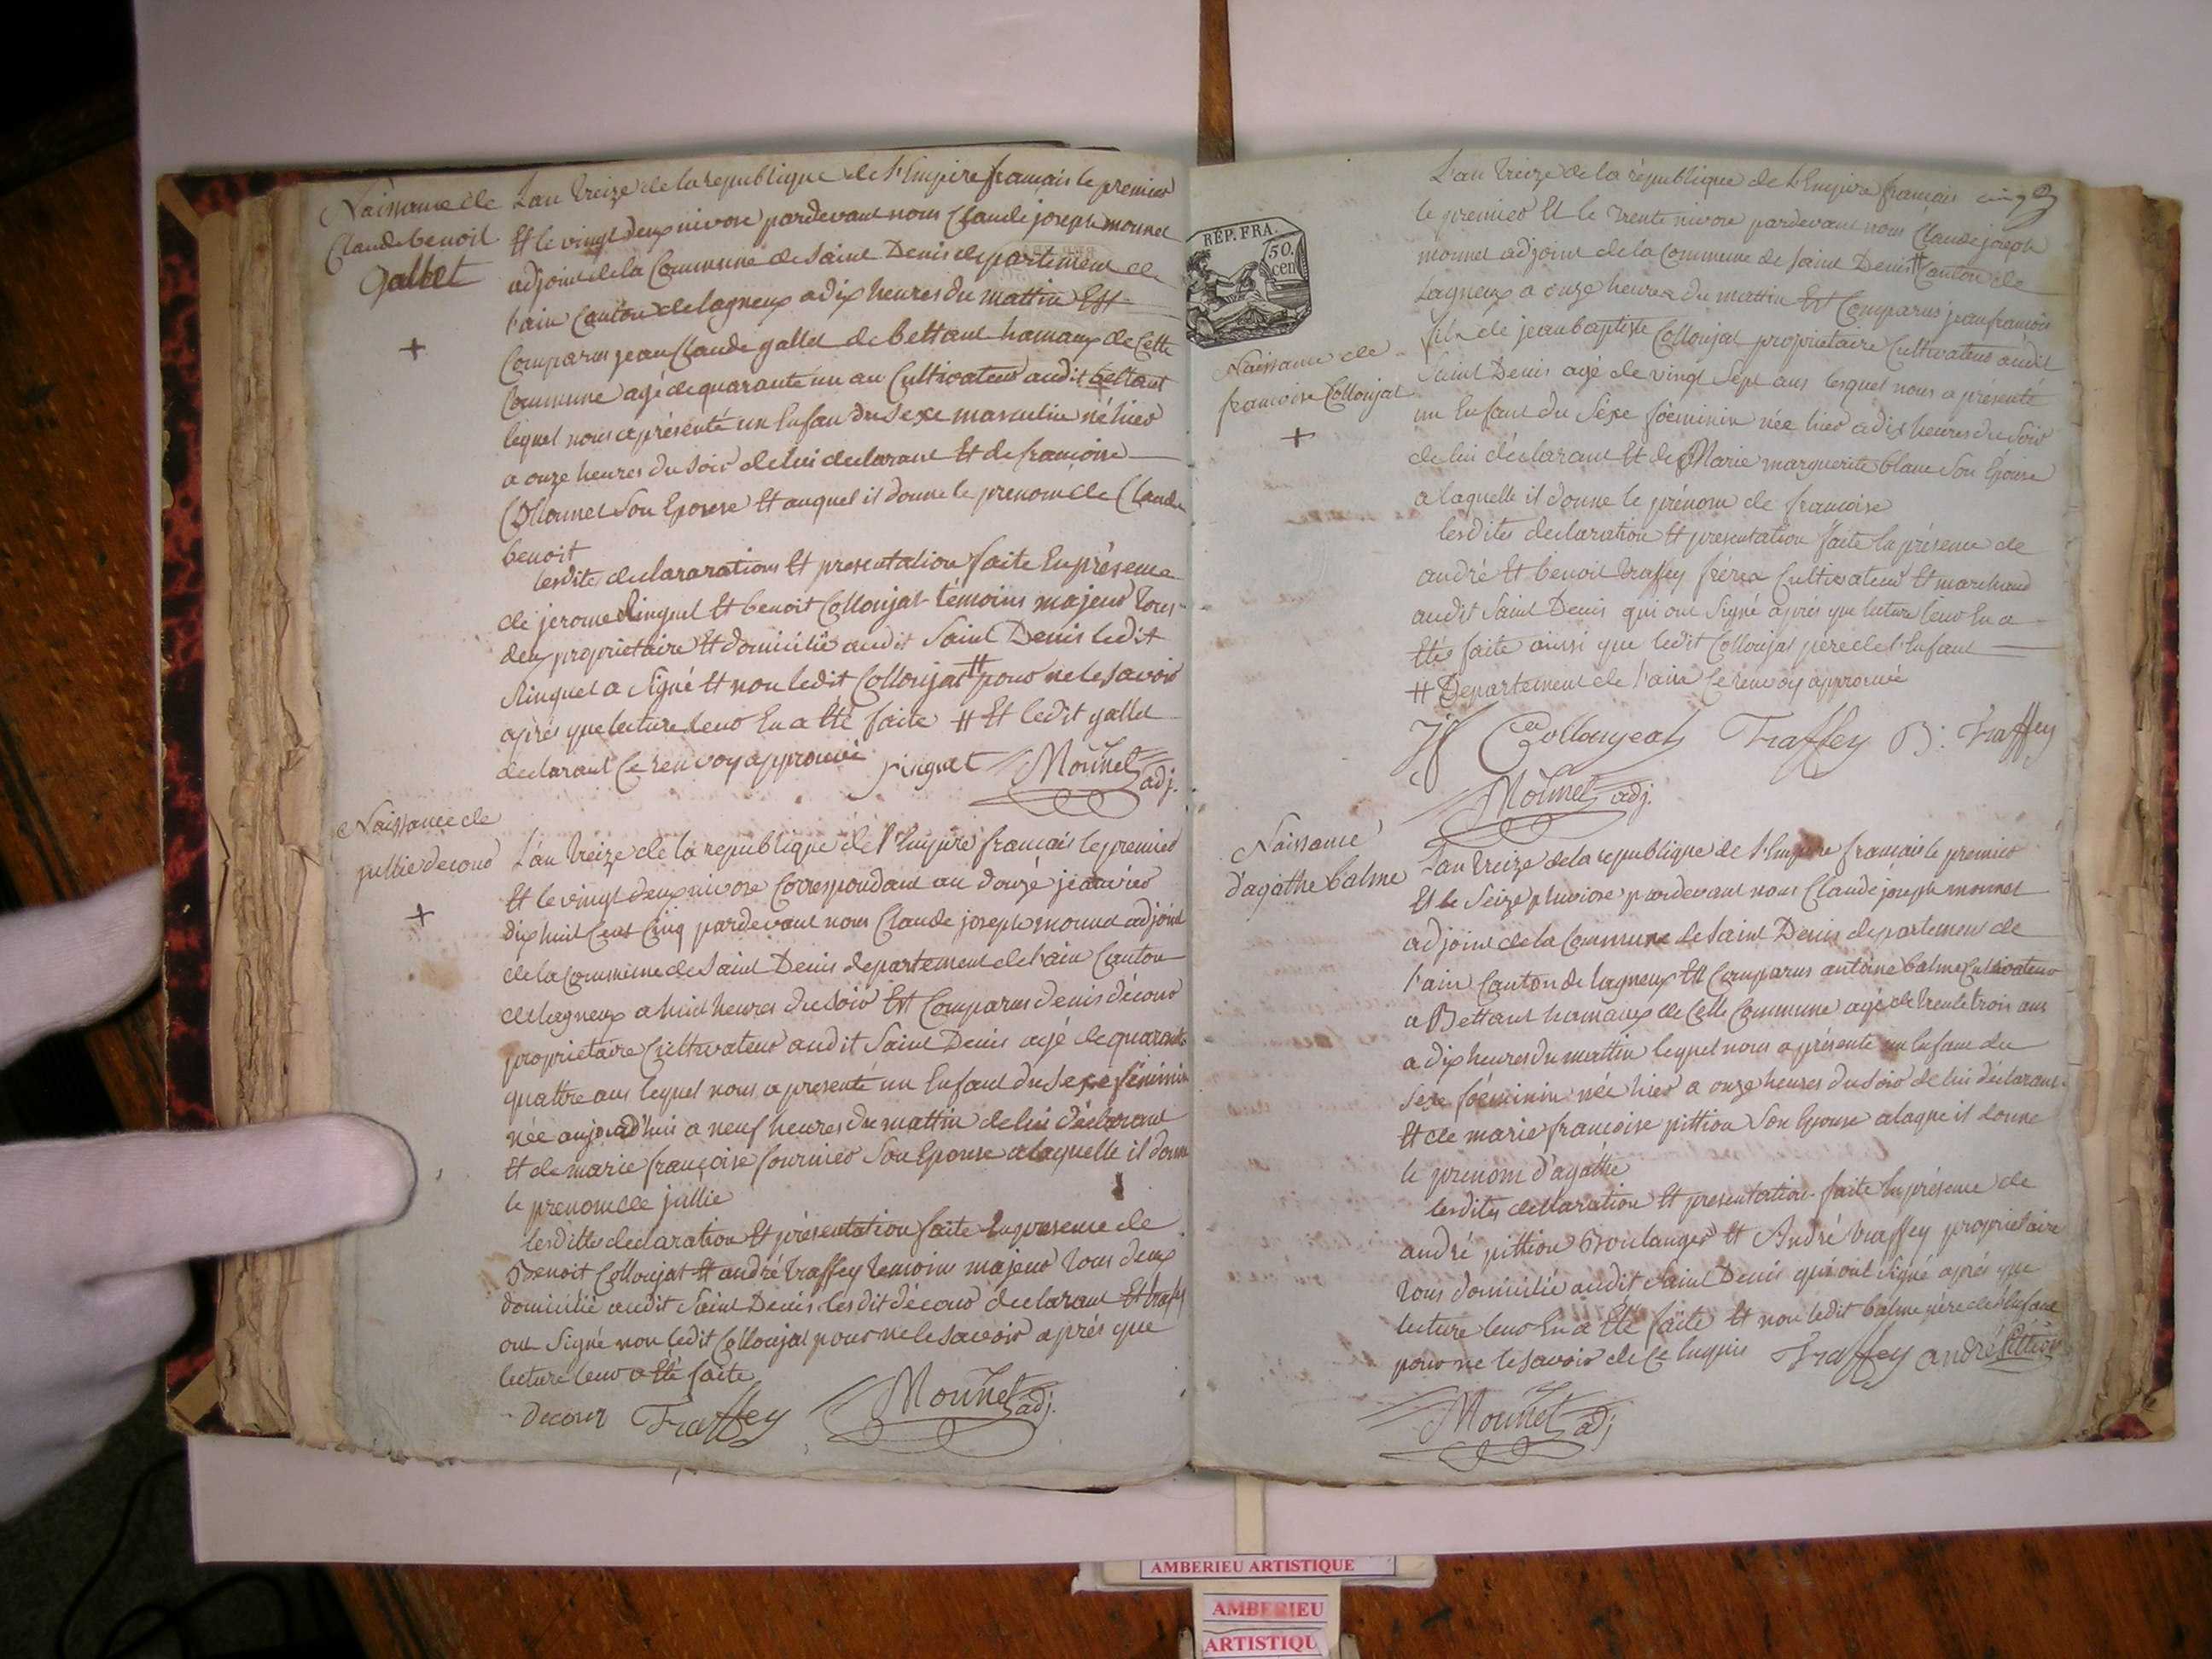 Naissance de
Claude benoit
Gallet
+
L'an treize de la republique de l'Empire francais le premier
Et le vingt deux nivose pardevant nous Claude joseph monnet
adjoint de la Commune de saint Denis departement de
l'ain Canton de lagneux a dix heures du mattin Est
Comparus jean Claude gallet de bettant hamaux de Cette
Commune agé de quarante un an Cultivateur audit bettant
lequel nous a présenté un Enfan du sexe masculin né hier
a onze heures du soir de lui declarant Et de francoise
Collonnet son Epouse Et auquel il donne le prenom de Claude
benoit
lesdites declararations Et presentation faite En présence
de jerome Ringuet Et benoit Collonjat témoins majeur tous
deux proprietaire Et domicilié audit Saint Denis ledit
Ringuet a signé Et non ledit Collonjat # pour ne le savoir
après que lecture leur En a Eté faite # Et ledit gallet
declarant Ce renvoy approuvé
Ringuet Monnet adj.
Naissance de
jullie decour
+
L'an treize de la republique de l'Empire francais le premier
Et le vingt deux nivose Correspondant au douze jeanvier
dix huit Cent Cinq pardevant nous Claude joseph monnet adjoint
de la Commune de Saint Denis departement de l'ain Canton
de lagneux a huit heures du soir Est Comparus denis décour
proprietaire Cultivateur audit Saint Denis agé de quarante
quattre ans lequel nous a presenté un Enfant du sexe féminin
née aujourd'hui a neuf heures du mattin de lui déclarant
Et de marie françoise fournier son Epouse a laquelle il donne
le prenom de jullie
lesdittes declaration Et présentation faite En presence de
Benoit Collonjat Et andré traffey temoins majeur tous deux
domicilié audit Saint Denis lesdit décour declarant Et traffey
ont signé non ledit Collonjat pour ne le savoir après que
lecture leur a Eté faite
decour Traffey Monnet adj.
RÉP. FRA.
50.
cen
Naissance de
francoise Collonjat
+
L'an treize de la république de L'Empire francais cinq
le premier Et le trente nivose pardevant nous Claude joseph
monnet adjoint de la Commune de saint Denis # Canton de
Lagneux a onze heures du mattin Est Comparus jean francois
fils de jean baptiste Collonjat proprietaire Cultivateur audit
Saint Denis agé de vingt Sept ans lesquel nous a présenté
un Enfant du Séxe fôeminin née hier a dix heures du Soir
de lui déclarant Et de Marie marguerite blanc Son Epouse
a laquelle il donne le prénom de francoise
lesdites declaration Et presentation faite En présence de
andré Et benoit traffey fréres Cultivateur Et marchand
audit Saint Denis qui ont Signé après que lecture leur En a
Etés faite ainsi que ledit Collonjat père de l'Enfant
# Departement de l'ain Ce renvoy approuvé
Collonjeat Traffey B: traffey
Monnet adj.
Naissance
d'agathe balme
L'an treize de la republique de l'Empire francais le premier
Et le Seize pluviose pardevant nous Claude joseph monnet
adjoint de la Commune de Saint Denis departement de
l'ain Canton de lagneux Est Comparus antoine balme Cultivateur
a Bettant hamaux de Cette Commune agé de trente trois ans
a dix heures du mattin lequel nous a présenté un Enfant du
Sexe fôeminin née hier a onze heures du Soir de lui déclarant
Et de marie francoise pittion Son Epouse a laque il donne
le prenom d'agathe
lesdites declaration Et presentation faite En présence de
andré pittion Boulanger Et André traffey proprietaire
tous domicilié audit Saint Denis qui ont signé après que
lecture leur En a Eté faite Et non ledit balme père de l'Enfant
pour ne le savoir de Ce Enquis Traffey andré Pittion
Monnet adj
AMBERIEU ARTISTIQUE
AMBERIEU
ARTISTIQU